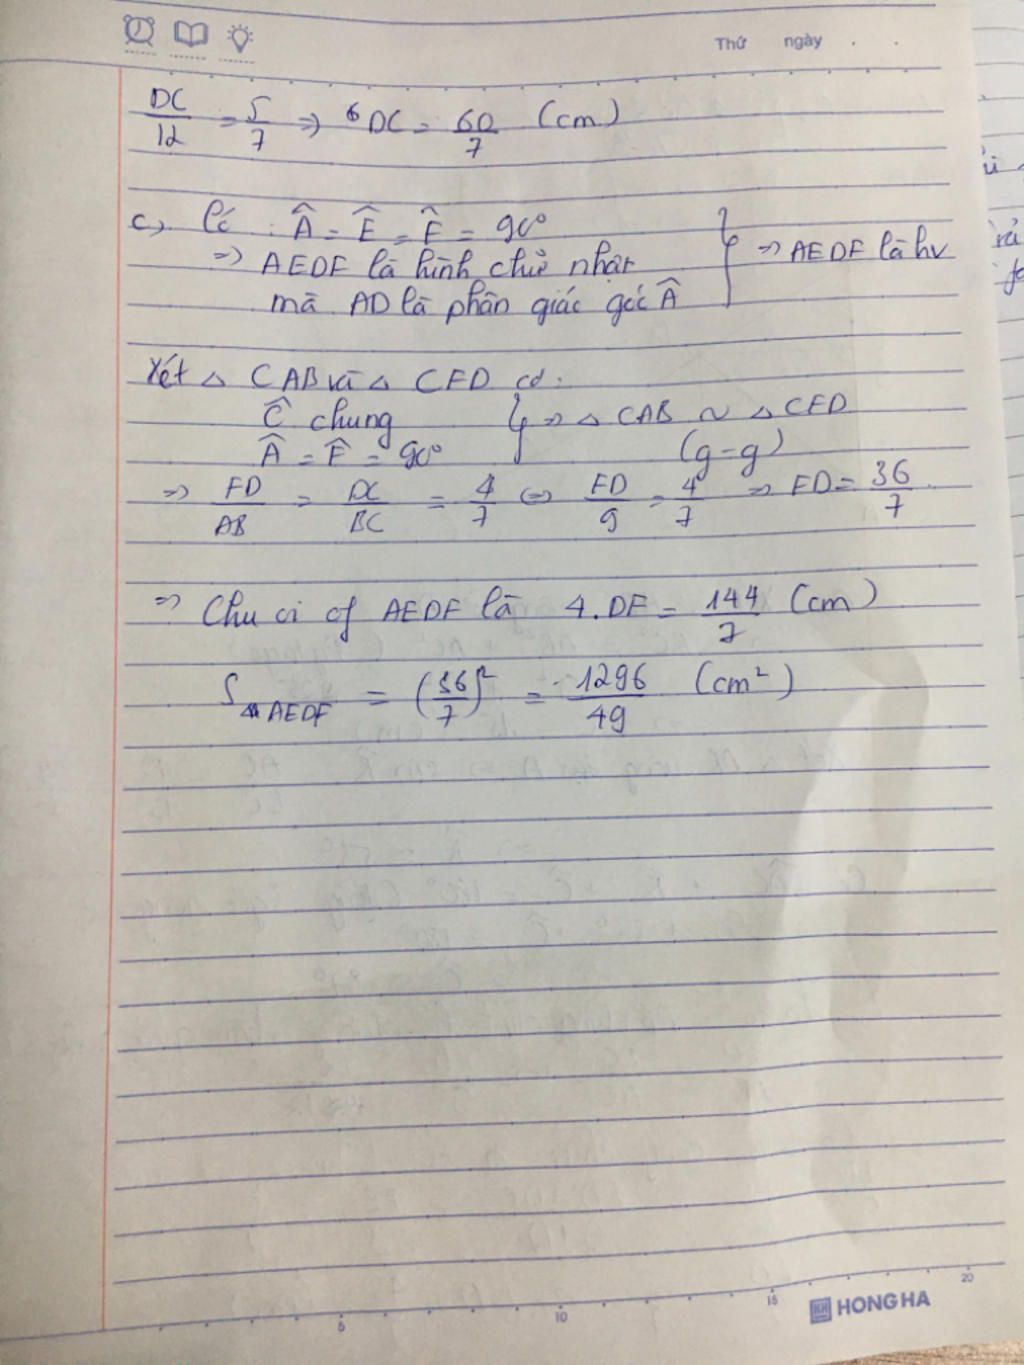 Thứ ngày . .
DC/12 = 5/7 => DC = 60/7 (cm)
c, Có : Â = Ê = F̂ = 90°
=> AEDF là hình chữ nhật
mà AD là phân giác góc Â } => AEDF là hv
Xét △ CAB và △ CFD có:
Ĉ chung
Â = F̂ = 90° } => △ CAB ~ △ CFD
(g-g)
=> FD/AB = DC/BC = 4/7 <=> FD/9 = 4/7 => FD = 36/7.
=> Chu vi of AEDF là 4.DF = 144/7 (cm)
S AEDF = (36/7)² = 1296/49 (cm²)
5 10 15 20
HONG HA